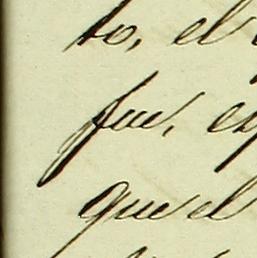 to, el
fue, es
que el